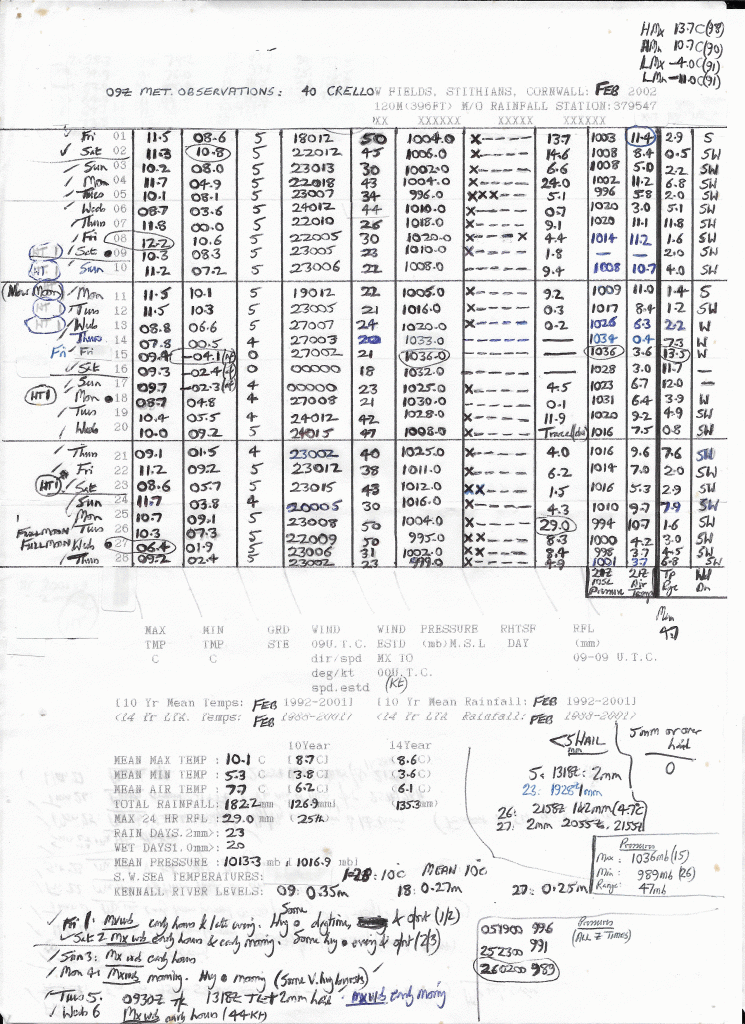 HMx 13.7C(98)
AMn 10.7C(90)
LMx -4.0C(91)
LMn -11.0C(91)
09Z MET. OBSERVATIONS: 40 CRELLOW FIELDS, STITHIANS, CORNWALL: FEB 2002
120M(396FT) M/O RAINFALL STATION:379547
XX XXXXXX XXXXX XXXXXX
✓ Fri 01 11.5 08.6 5 18012 50 1004.0 X----- 13.7 1003 11.4 2.9 S
✓ Sat 02 11.3 10.8 5 22012 45 1006.0 X----- 14.6 1008 8.4 0.5 SW
/ Sun 03 10.2 08.0 5 23013 30 1002.0 X----- 6.6 1008 5.0 2.2 SW
/ Mon 04 11.7 04.9 5 22018 43 1004.0 X----- 24.0 1002 11.2 6.8 SW
/ Tues 05 10.1 08.1 5 23007 34 996.0 XXX--- 5.1 996 5.8 2.0 SW
/ Weds 06 08.7 03.6 5 24012 44 1010.0 X----- 0.7 1020 3.0 5.1 SW
/ Thurs 07 11.8 00.0 5 22010 26 1018.0 X----- 9.1 1020 11.1 11.8 SW
/ Fri 08 12.2 10.6 5 22005 30 1020.0 X----X 4.4 1014 11.2 1.6 SW
HT1 / Sat 09 10.3 08.3 5 23005 23 1010.0 X----- 1.8 — — 2.0 SW
HT1 / Sun 10 11.2 07.2 5 23006 22 1008.0 9.4 1008 10.7 4.0 SW
(New Moon) / Mon 11 11.5 10.1 5 19012 22 1005.0 X----- 9.2 1009 11.0 1.4 S
/ Tues 12 11.5 10.3 5 23005 21 1016.0 X----- 0.3 1017 8.4 1.2 SW
HT1 / Wed 13 08.8 06.6 5 27007 24 1020.0 X----- 0.2 1026 6.3 2.2 W
/ Thurs 14 07.8 00.5 4 27003 20 1033.0 ------ — 1034 0.4 7.3 W
Fri / Fri 15 09.4 -04.1 0 27002 21 1036.0 ------ — 1036 3.6 13.5 W
/ Sat 16 09.3 -02.4 4 00000 18 1032.0 ------ — 1028 3.0 11.7 —
/ Sun 17 09.7 -02.3 4 00000 23 1025.0 X----- 4.5 1023 6.7 12.0 —
HT1 / Mon 18 08.7 04.8 4 27008 21 1030.0 ------ 0.1 1031 6.4 3.9 W
/ Tues 19 10.4 05.5 4 24012 42 1028.0 X----- 11.9 1020 9.2 4.9 SW
/ Wed 20 10.0 09.2 5 24015 47 1008.0 X----- Trace 1016 7.5 0.8 SW
/ Thurs 21 09.1 01.5 4 23002 40 1025.0 X----- 4.0 1016 9.6 7.6 SW
/ Fri 22 11.2 09.2 5 23012 38 1011.0 X----- 6.2 1014 7.0 2.0 SW
HT1 / Sat 23 08.6 05.7 5 23015 48 1012.0 XX---- 1.5 1016 5.3 2.9 SW
/ Sun 24 11.7 03.8 4 20005 30 1016.0 X----- 4.3 1010 9.7 7.9 SW
/ Mon 25 10.7 09.1 5 23008 50 1004.0 X----- 29.0 994 10.7 1.6 SW
/ Tues 26 10.3 07.3 5 22009 50 995.0 XX---- 8.3 1000 4.2 3.0 SW
FULLMOON Wed 27 06.4 01.9 5 23006 31 1002.0 XX---- 8.4 998 3.7 4.5 SW
/ Thurs 28 09.2 02.4 5 23002 23 999.0 X----- 4.9 1001 3.7 6.8 SW
21Z MSL Pressure 21Z Air Temp Tp Rge Wd Dn
Min 4.7
MAX MIN GRD WIND WIND PRESSURE RHTSF RFL
TMP TMP STE 09U.T.C. ESTD (mb)M.S.L DAY (mm)
C C dir/spd MX TO 09-09 U.T.C.
deg/kt 00U.T.C.
spd.estd (KE)
[10 Yr Mean Temps: FEB 1992-2001] [10 Yr Mean Rainfall: FEB 1992-2001]
(14 Yr LTA. Temps: FEB 1988-2001) (14 Yr LTA Rainfall: FEB 1988-2001)
10Year 14Year
MEAN MAX TEMP : 10.1 C [8.7C] (8.6C)
MEAN MIN TEMP : 5.3 C [3.8C] (3.6C)
MEAN AIR TEMP : 7.7 C [6.2C] (6.1C)
TOTAL RAINFALL: 182.2mm 126.9mm (135.3mm)
MAX 24 HR RFL : 29.0 mm (25th)
RAIN DAYS.2mm>: 23
WET DAYS1.0mm>: 20
MEAN PRESSURE : 1013.3 mb [1016.9 mb]
S.W.SEA TEMPERATURES: 1-28: 10C MEAN 10C
KENNALL RIVER LEVELS: 09: 0.35m 18: 0.27m 27: 0.25m
<5 HAIL
mm
5: 1318Z: 2mm
23: 1928Z 1mm
26: 2158Z 1&2mm (4.7C)
27: 2mm 2055Z, 2155Z
5mm or over
hail
0
Pressures
Max: 1036mb (15)
Min: 989mb (26)
Range: 47mb
Pressures
(ALL Z TIMES)
051900 996
252300 991
260200 989
/ Fri 1: Mx wb early hours & late evning. Some Hvy • daytime, & o/nt (1/2)
/ Sat 2 Mx wb early hours & early morning. Some hvy • evning & o/nt (2/3)
/ Sun 3: Mx wb early hours
/ Mon 4: Mx wb morning. Hvy • morning (Some v. hvy bursts)
/ Tues 5. 0930Z 1318Z + 2mm hail. Mx wb early morning
/ Weds 6 Mx wb early hours (44Kt)